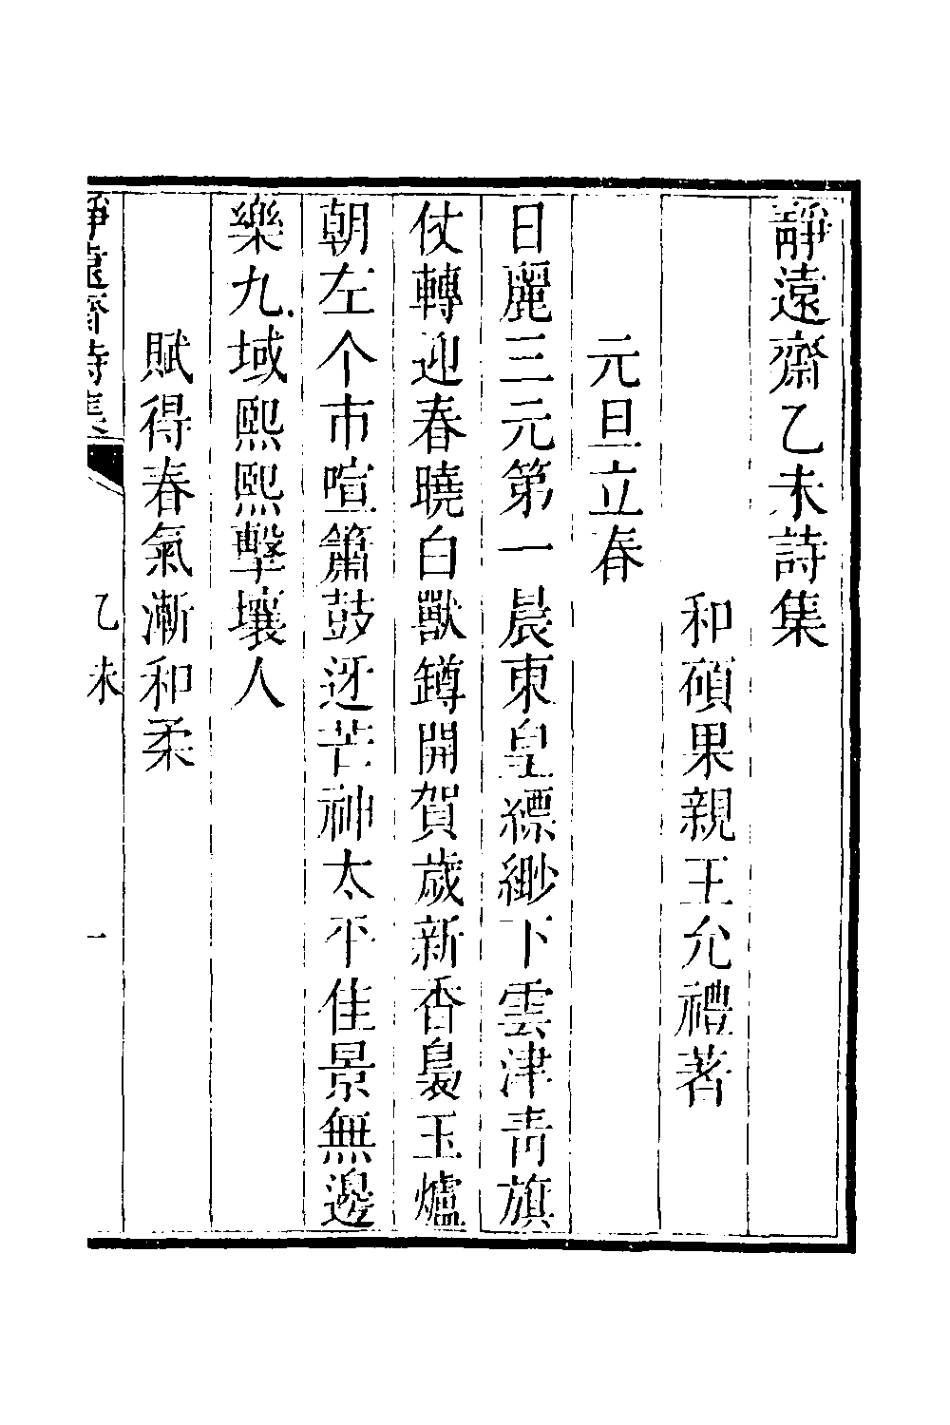 靜遠齋乙未詩集
和碩果親王允禮著
元旦立春
日麗三元第一晨東皇縹緲下雲津青旗
仗轉迎春曉白獸鐏開賀歲新香裊玉爐
朝左个市喧簫鼓迓芒神太平佳景無邊
樂九域熙熙擊壤人
賦得春氣漸和柔
靜遠齋詩集
乙未
一